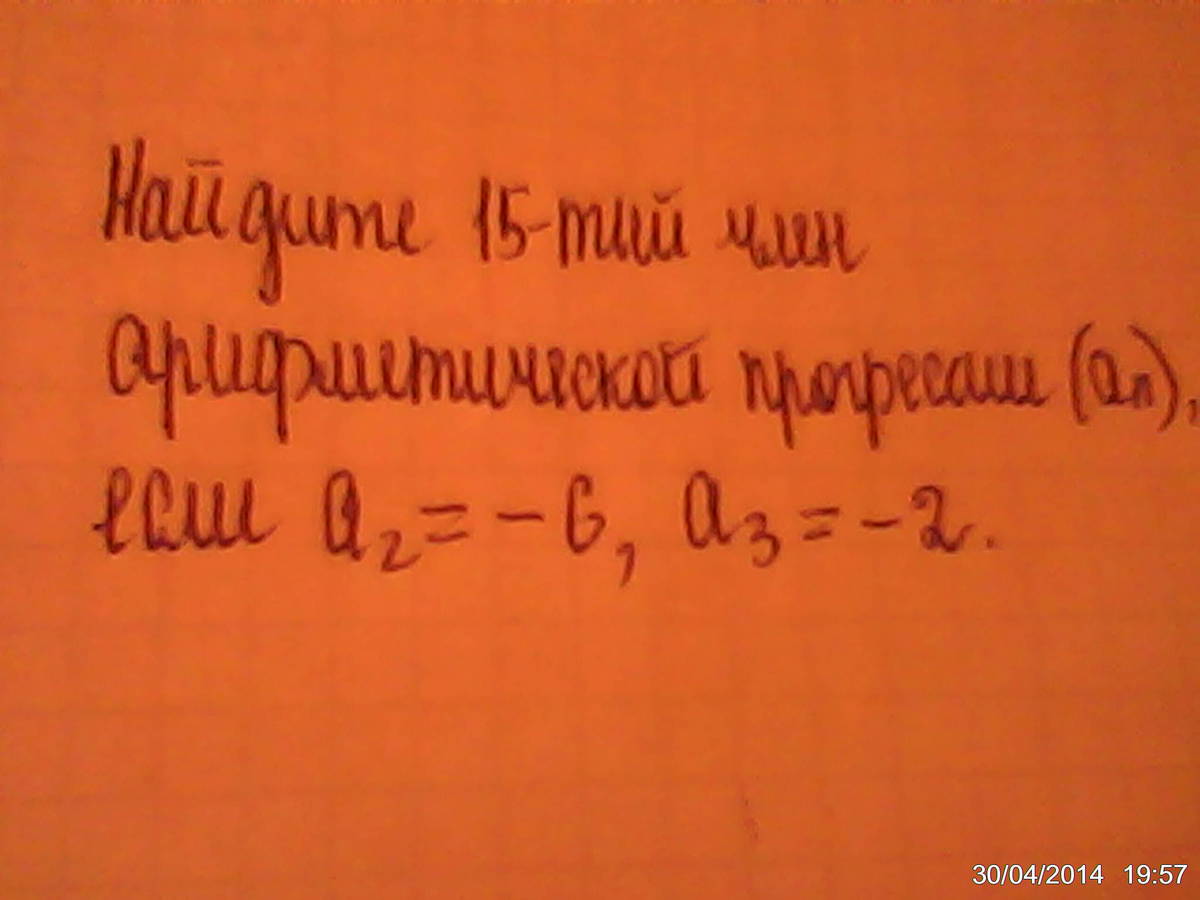 Найдите 15-тый член
арифметической прогресии (aₙ),
если a₂ = - 6, a₃ = - 2.
30/04/2014 19:57